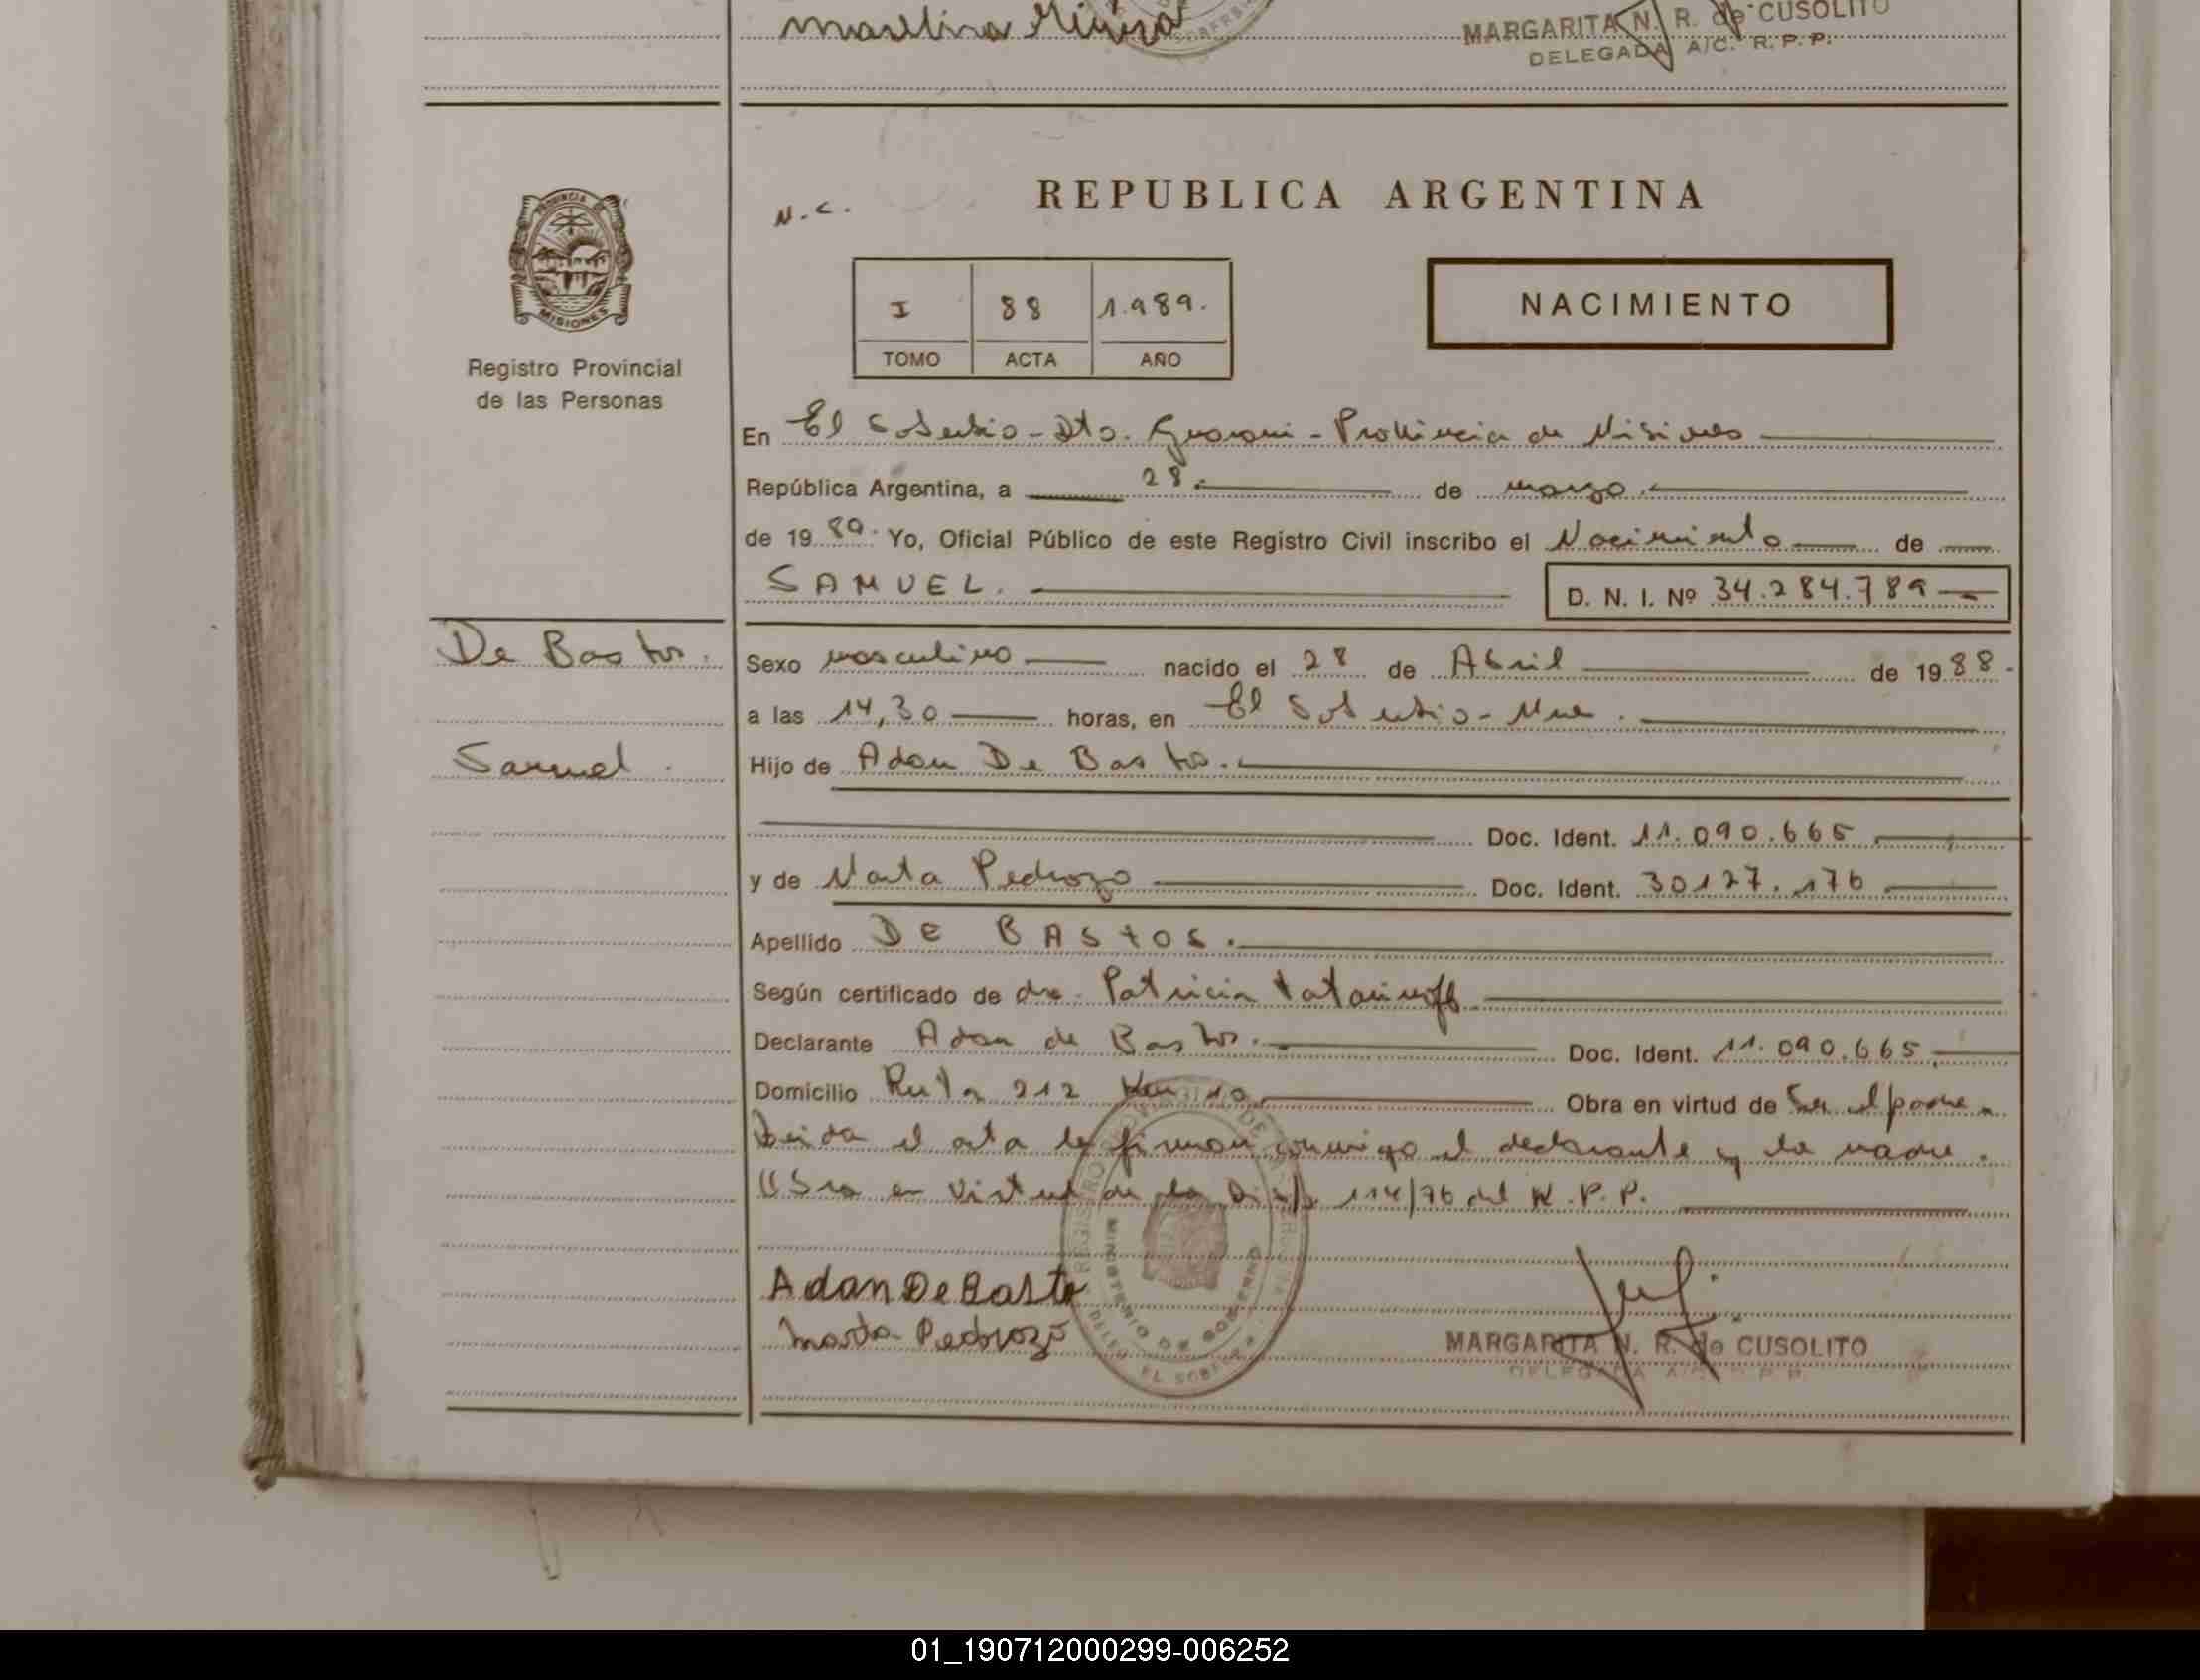 Marlina
MARGARITA N. R. de CUSOLITO
DELEGADA A/C. R. P. P.
PROVINCIA DE
MISIONES
Registro Provincial
de las Personas
N.C.
REPUBLICA ARGENTINA
I 88 1.989.
TOMO ACTA AÑO
NACIMIENTO
En El Soberbio - Dto. Guarani - Provincia de Misiones
República Argentina, a 28. de marzo.
de 19 89. Yo, Oficial Público de este Registro Civil inscribo el Nacimiento de
SAMUEL.
D. N. I. Nº 34.284.789
De Bastos.
Samuel.
Sexo masculino nacido el 28 de Abril de 1988.
a las 14,30 horas, en El Soberbio - Mnes.
Hijo de Adan De Bastos.
Doc. Ident. 11.090.665
y de Marta Pedrozo Doc. Ident. 30127.176
Apellido DE BASTOS.
Según certificado de dra. Patricia Tatarinoff
Declarante Adan de Bastos. Doc. Ident. 11.090.665
Domicilio Ruta 212 Km 10 Obra en virtud de Ser el padre.
Leida el acta la firman conmigo el declarante y la madre.
en virtud de la Disp. 114/76 del R.P.P.
REGISTRO
MINISTERIO DE GOBIERNO
DELEG. EL SOBERBIO
Adan De Basto
Marta Pedrozo
MARGARITA N. R. de CUSOLITO
DELEGADA A/C R. P. P.
01_190712000299-006252